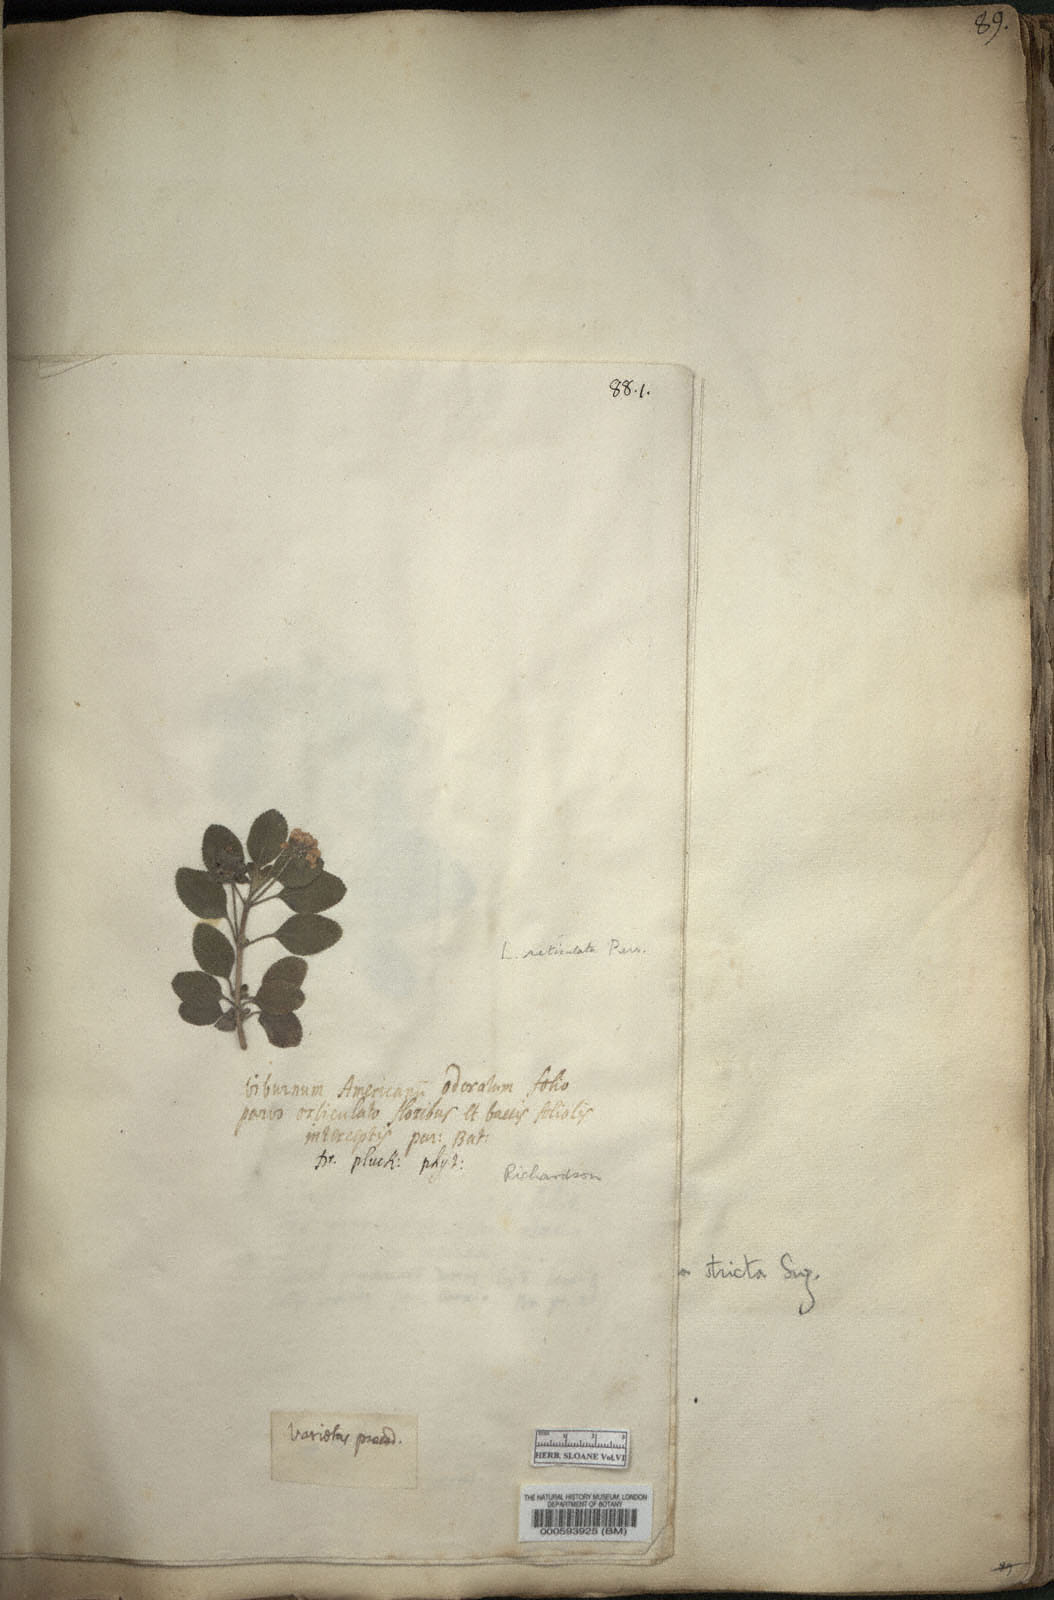 89.
88.1.
L. reticulata Pers.
Viburnum Americanū odoratum folio
parvo orliculato floribus et baccis foliolis
interceptis par: Bat:
Dr. pluck: phyt:
Richardson
a stricta Sw.
Varietas praeced.
HERB. SLOANE Vol.VI
THE NATURAL HISTORY MUSEUM, LONDON
DEPARTMENT OF BOTANY
000593925 (BM)